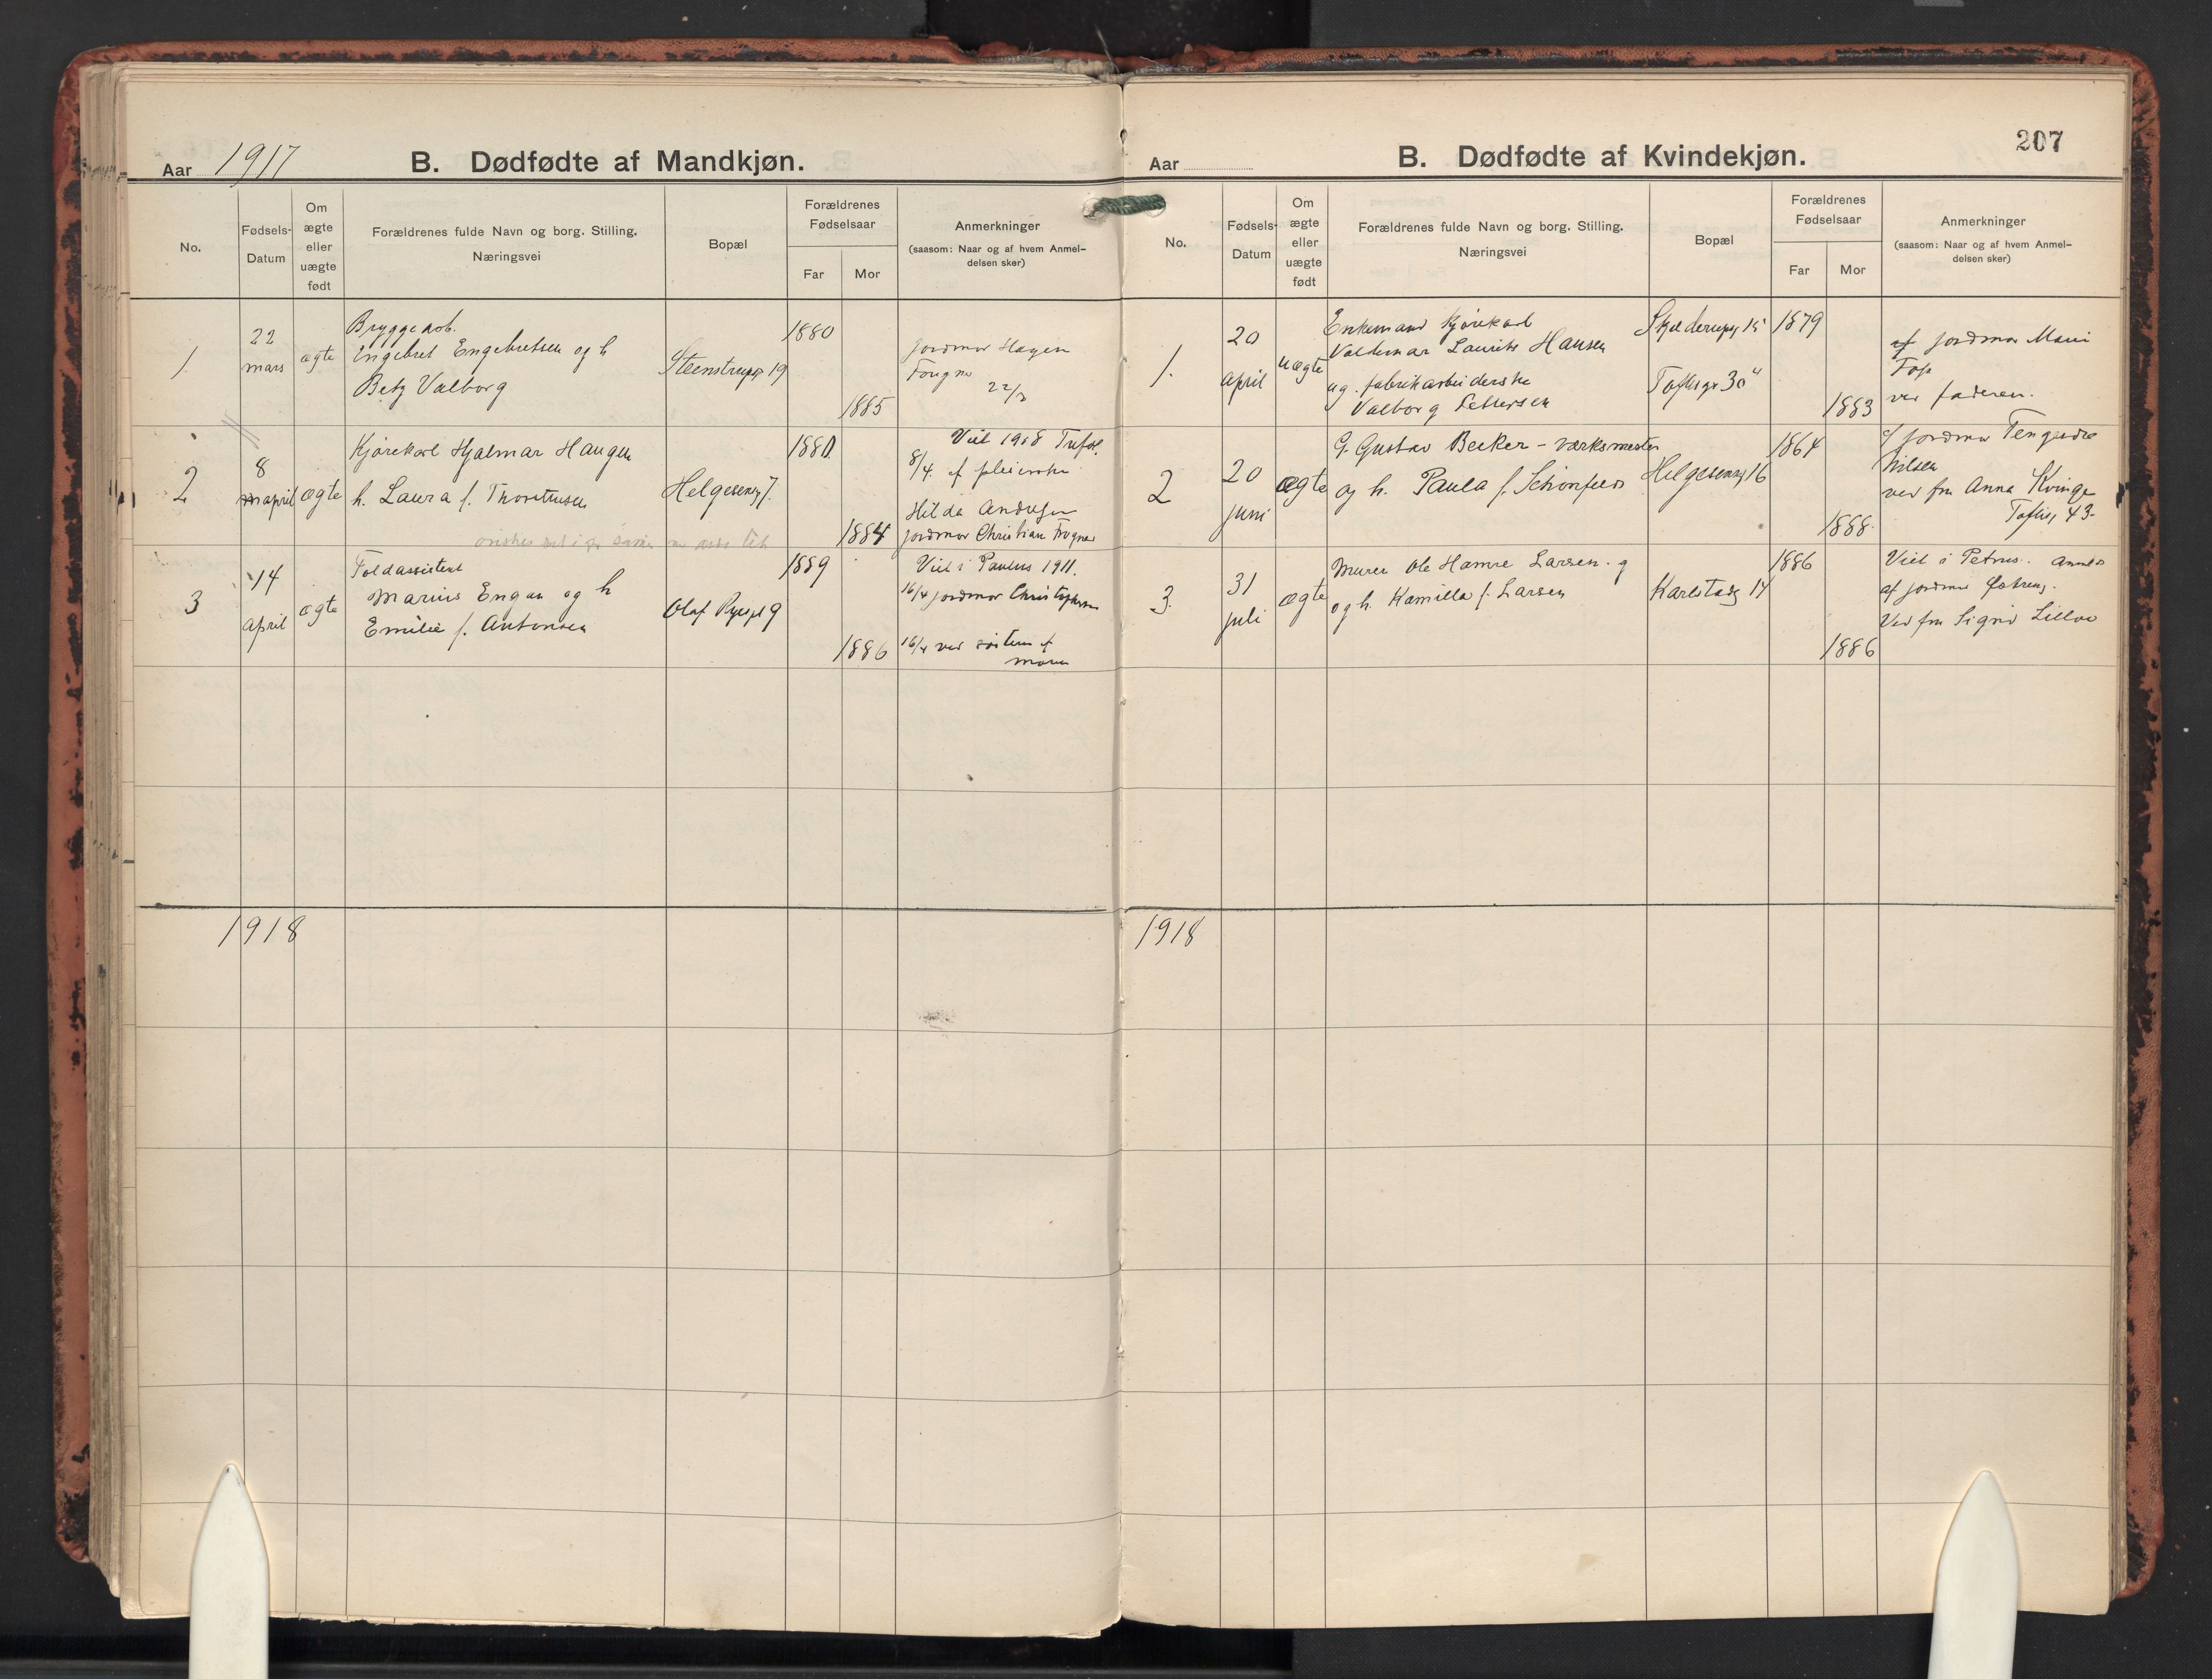 Aar 1917
B. Dødfødte af Mandkjøn.
No.
Fødsels-
Datum
Om
ægte
eller
uægte
født
Forældrenes fulde Navn og borg. Stilling.
Næringsvei
Bopæl
Forældrenes
Fødselsaar
Far
Mor
Anmerkninger
(saasom: Naar og af hvem Anmel-
delsen sker)
1
22
mars
ægte
Bryggearb.
Engebret Engebretsen og h
Betzy Valborg
Steenstrupg 19
1880
1885
jordmor Hagen
Fougner
22/3
2
8
april
ægte
Kjørekarl Hjalmar Haugen
h. Laura f. Thorstensen
Helgeseng 7.
1880.
1884
Viet 1908 Trefol.
8/4. af pleierske
Hilda Andersen
jordmor Christian Frogner
3
14
april
ægte
Toldassistent
Marius Engan og h
Emilie f. Antonsen
Olaf Ryespl 9
1889
1886
Viet i Paulus 1911.
16/4 jordmor Christophersen
16/4 ved søsteren af
moren
1918
207
Aar
B. Dødfødte af Kvindekjøn.
No.
Fødsels-
Datum
Om
ægte
eller
uægte
født
Forældrenes fulde Navn og borg. Stilling.
Næringsvei
Bopæl
Forældrenes
Fødselsaar
Far
Mor
Anmerkninger
(saasom: Naar og af hvem Anmel-
delsen sker)
1.
20
april
uægte
Enkemand kjørekarl
Valdemar Laurits Hansen
ug. fabrikarbeiderske
Valborg Pettersen
Skjelderupsg 15
Toftesgt 30
1879
1883
af jordmor Marie
Foss
ved faderen.
2
20
juni
ægte
G. Gustav Becker - værksmester
og h. Paula f. Schönfeld
Helgeseng 16
1864
1888.
af jordmor
Nilsen
ved fru Anna Kvinge
Toftesg 43.
3.
31
juli
ægte
Murer Ole Hamre Larsen. g
og h. Kamilla f. Larsen
Karlstadg 14
1886
1886
Viet i Petrus. Anmeldt
af jordmor Østreng.
Ved fru Sigrid Lilloe
1918